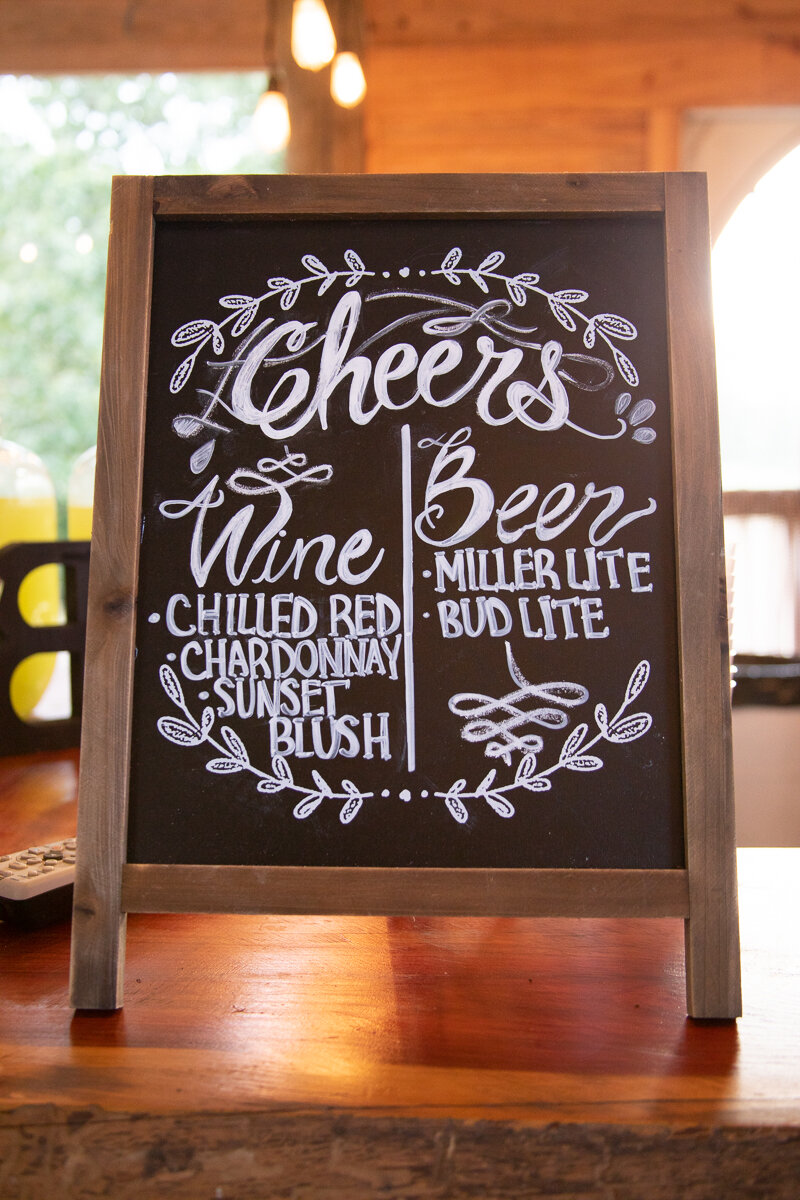 Cheers
Wine
• CHILLED RED
• CHARDONNAY
• SUNSET
BLUSH
Beer
• MILLER LITE
• BUD LITE